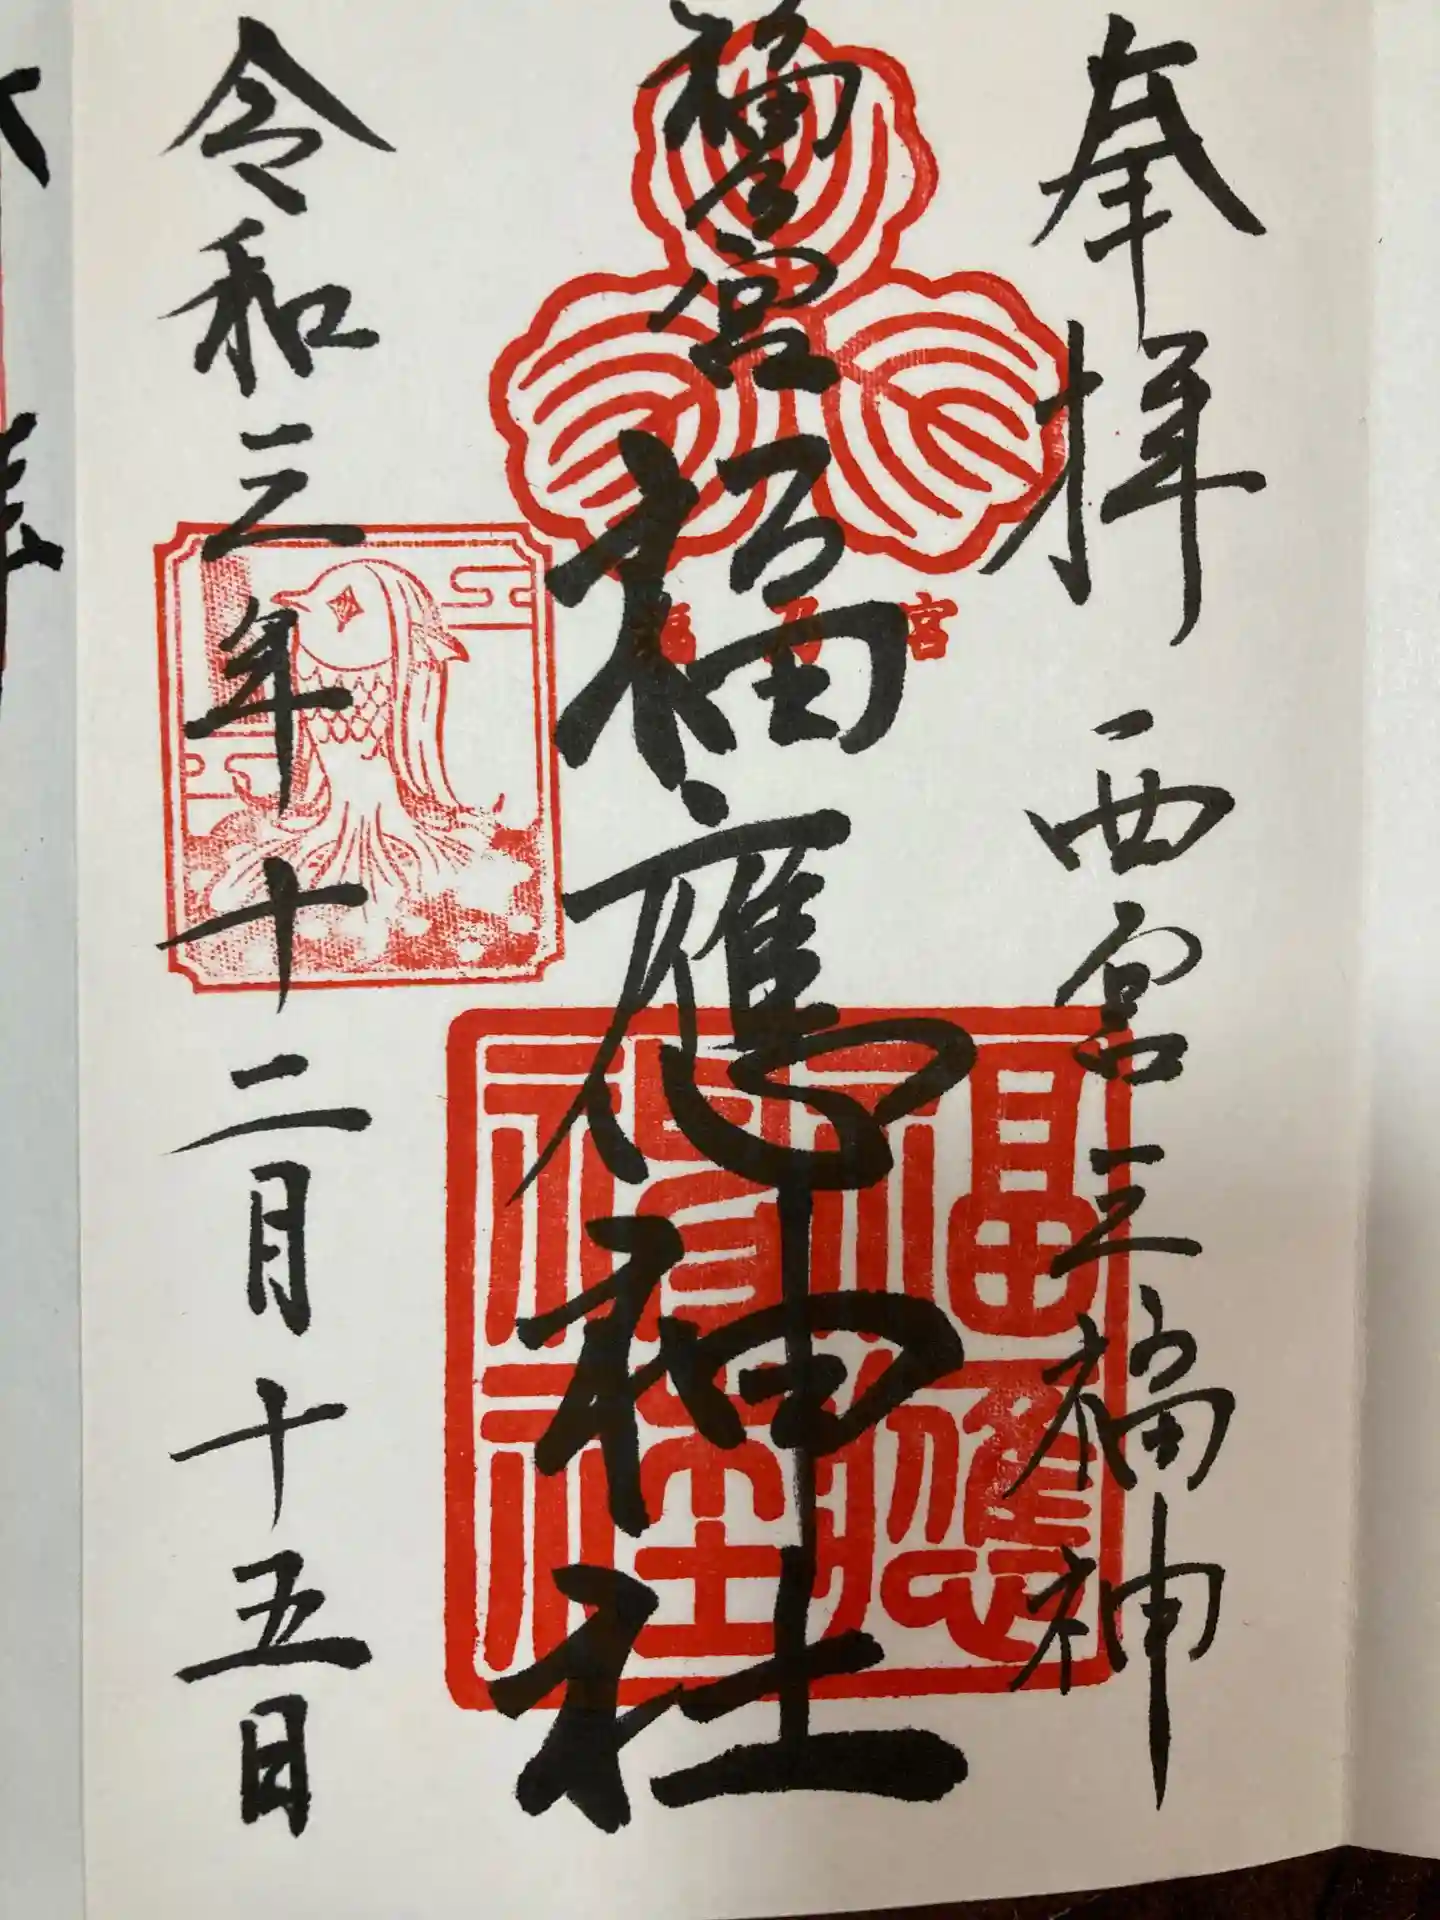 奉拝 西宮三福神
福乃宮 福應神社
福乃宮
福應神社
令和三年十二月十五日